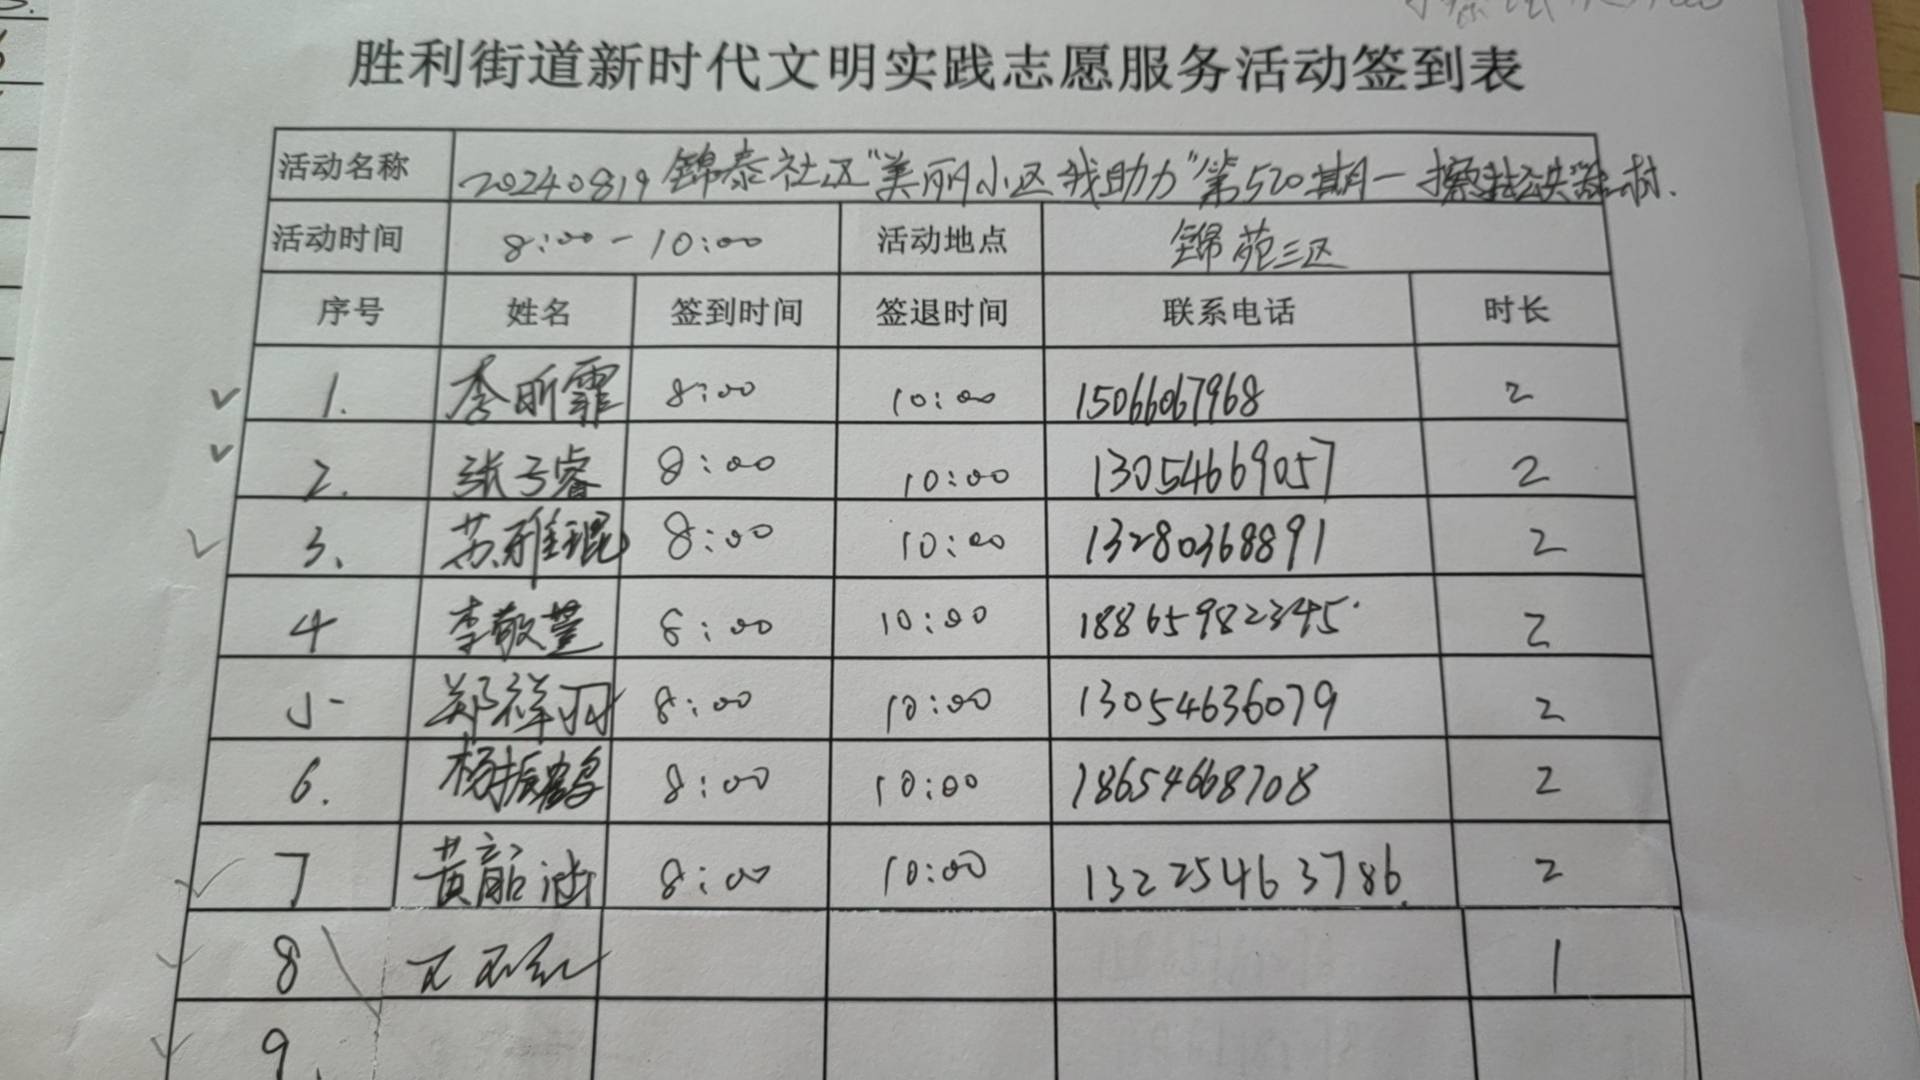 胜利街道新时代文明实践志愿服务活动签到表
活动名称 20240819锦泰社区"美丽小区我助力"第520期一擦
活动时间 8:00-10:00 活动地点 锦苑三区
序号 姓名 签到时间 签退时间 联系电话 时长
1. 李昕霏 8:00 10:00 15066067968 2
2. 张子睿 8:00 10:00 13054669057 2
3. 苏雅琨 8:00 10:00 13280368891 2
4 李敬萱 8:00 10:00 18865982345 2
5 郑祥 8:00 10:00 13054636079 2
6. 杨振鹤 8:00 10:00 18654668708 2
7 黄韶涵 8:00 10:00 13225463786. 2
8 1
9.